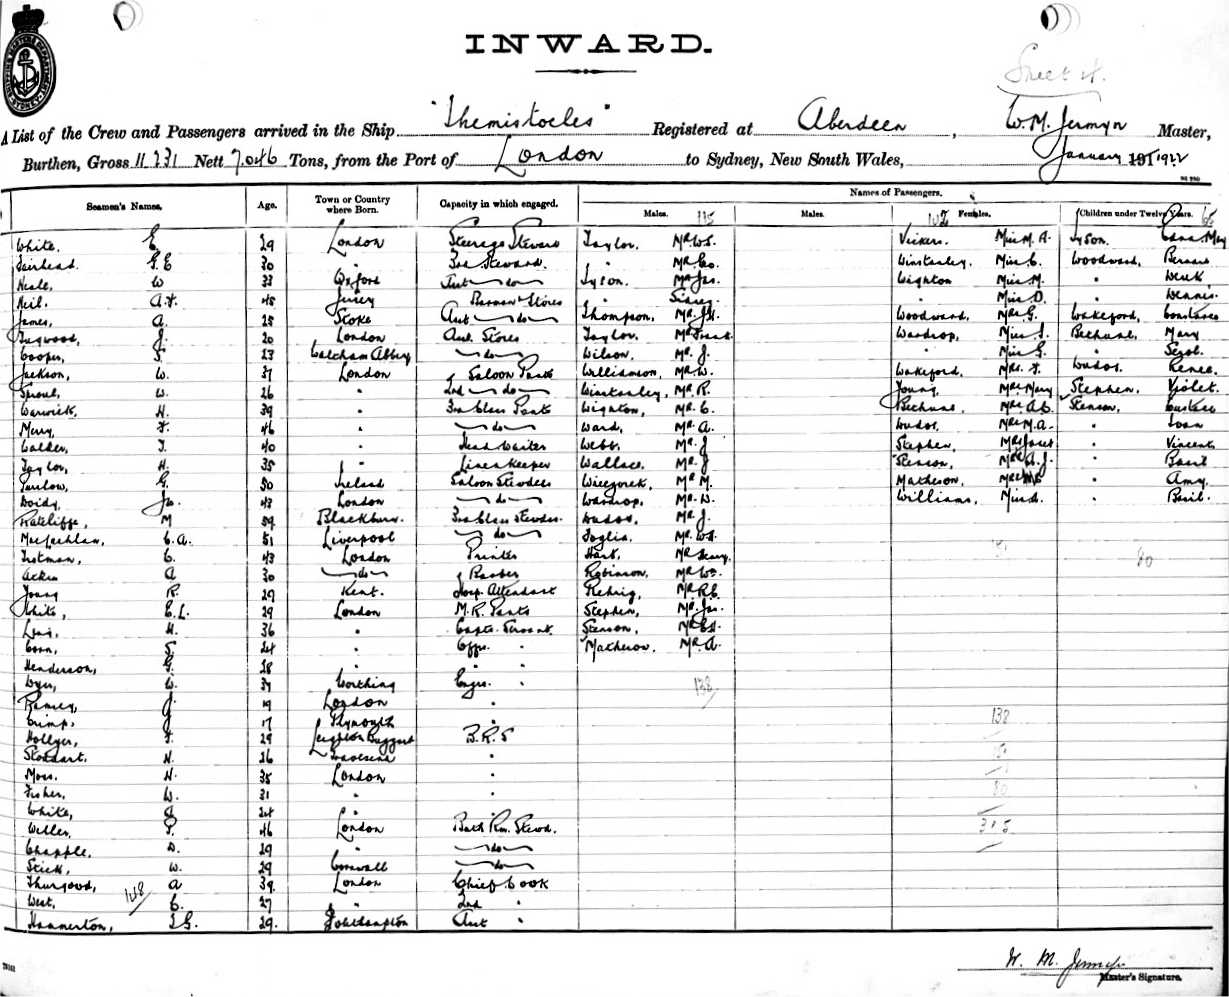 INWARD.
Sheet 4.
A List of the Crew and Passengers arrived in the Ship "Themistocles" Registered at Aberdeen, W. M. Jermyn Master,
Burthen, Gross 11 231 Nett 7.046 Tons, from the Port of London to Sydney, New South Wales, January 191 1922
Names of Passengers.
Seamen's Names. Age. Town or Country where Born. Capacity in which engaged. Males. Males. Females. Children under Twelve Years.
White. E 29 London Steerage Steward Taylor. Mr W.S. Vickers. Miss M. A. Tyson. May
Fairhead. G. E 30 " 3rd Steward. " Mr Geo. Winstanley, Miss C. Woodward, Bernard
Neale, W 33 Oxford Asst do Tyson. Mr Jas. Wighton Miss M. " Derek
Neil. A. F. 45 Jersey Barman Stores " Sidney. " Miss D. " Dennis.
James, A. 25 Stoke Asst do Thompson, Mr J.H. Woodward, Mrs G. Wakeford, Constance
Tugwood, J. 20 London Asst. Stores Taylor. Mr Frank. Wardrop, Miss J. Bethune, Mary
Cooper, S. 23 Waltham Abbey do Wilson, Mr. J. " Miss G. "
Jackson, W. 37 London Saloon Pants Williamson, Mr W. Wakeford, Mrs. F. Dudos. Renee.
Sproul, W. 26 " 2nd do Winstanley, Mr R. Young, Mrs Mary Stephen, Violet.
Warwick, H. 39 " 3rd Class Pants Wighton, Mr. C. Bethune, Mrs A.C. Stenson, Eustace
Merry, F. 46 " do Ward, Mr. A. Dudos. Mrs M.A. " Joan
Walker, T. 40 " Head Waiter Webb. Mr. J Stephen, Mrs Janet. " Vincent
Taylor, H. 35 " Linen Keeper Wallace. Mr. J Stenson, " Basil
G. 50 Ireland Saloon Stewdess Mr M. Matheson, " Amy.
Jn. 43 London do Wardrop, Mr. W. Williams, Miss A. " Basil.
Ratcliffe, M 59 Blackburn. 3rd Class Stewdss. Dudos, Mr. J.
MacLachlan, C. A. 51 Liverpool do Foglia. Mr. W.
Trotman, C. 43 London Printer Hart, Mr Henry.
A 30 do Barber Robinson, Mr Wm.
Young R. 29 Kent. Hosp. Attendant Rehrig, Mr. R.C.
White, E.L. 29 London M.R. Pants Stephen, Mr. Jas.
Lewis, H. 36 " Capts. Servant. Stenson, Mr
Corn, S. 24 " Offrs. " Matheson. Mr. A.
Henderson, G. 28 " "
Dyer, W. 34 Worthing Engrs. " 138
Ramsey, J. 19 London "
Crimp, J 17 Plymouth " 138
Hollyer, F. 29 Leighton Buzzard B.R.S
Stoddart. H. 26 Gravesend "
Moss. H. 35 London "
Fisher, W. 31 " "
White, A 24 " "
Weller, P. 46 London Bath Rm. Stewd.
Chapple. D. 29 " do
Stick, W. 29 Cornwall do
Thurgood, A 39 London Chief Cook
West. 148 C. 27 " 2nd "
Hammerton, S.G. 29. Southampton Asst "
W. M. Jermyn
Master's Signature.